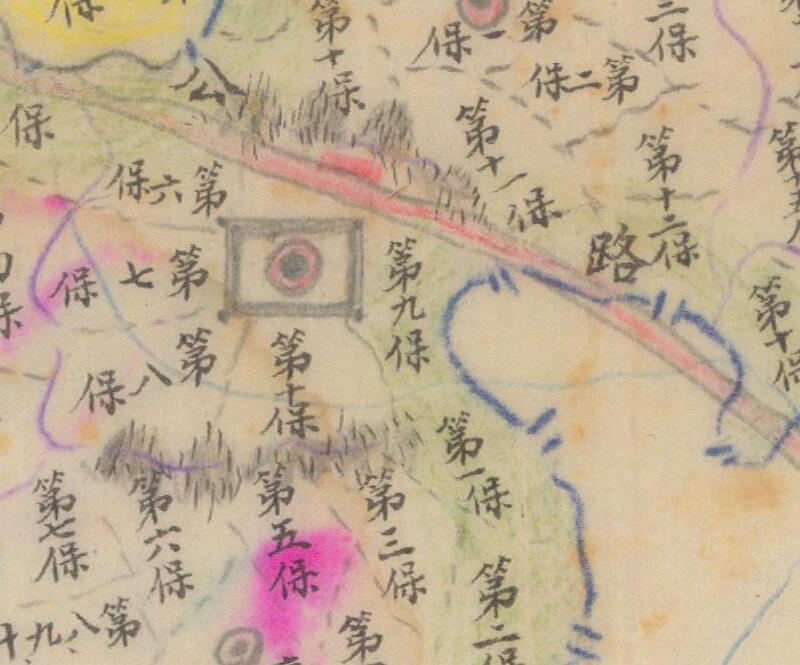 保
第十保
保一第
二保
公
保二第
保
第十一保
第十二保
保六第
路
保七第
第九保
保八第
第十保
第一保
第七保
第六保
第五保
第三保
第二保
十、九、八第
第